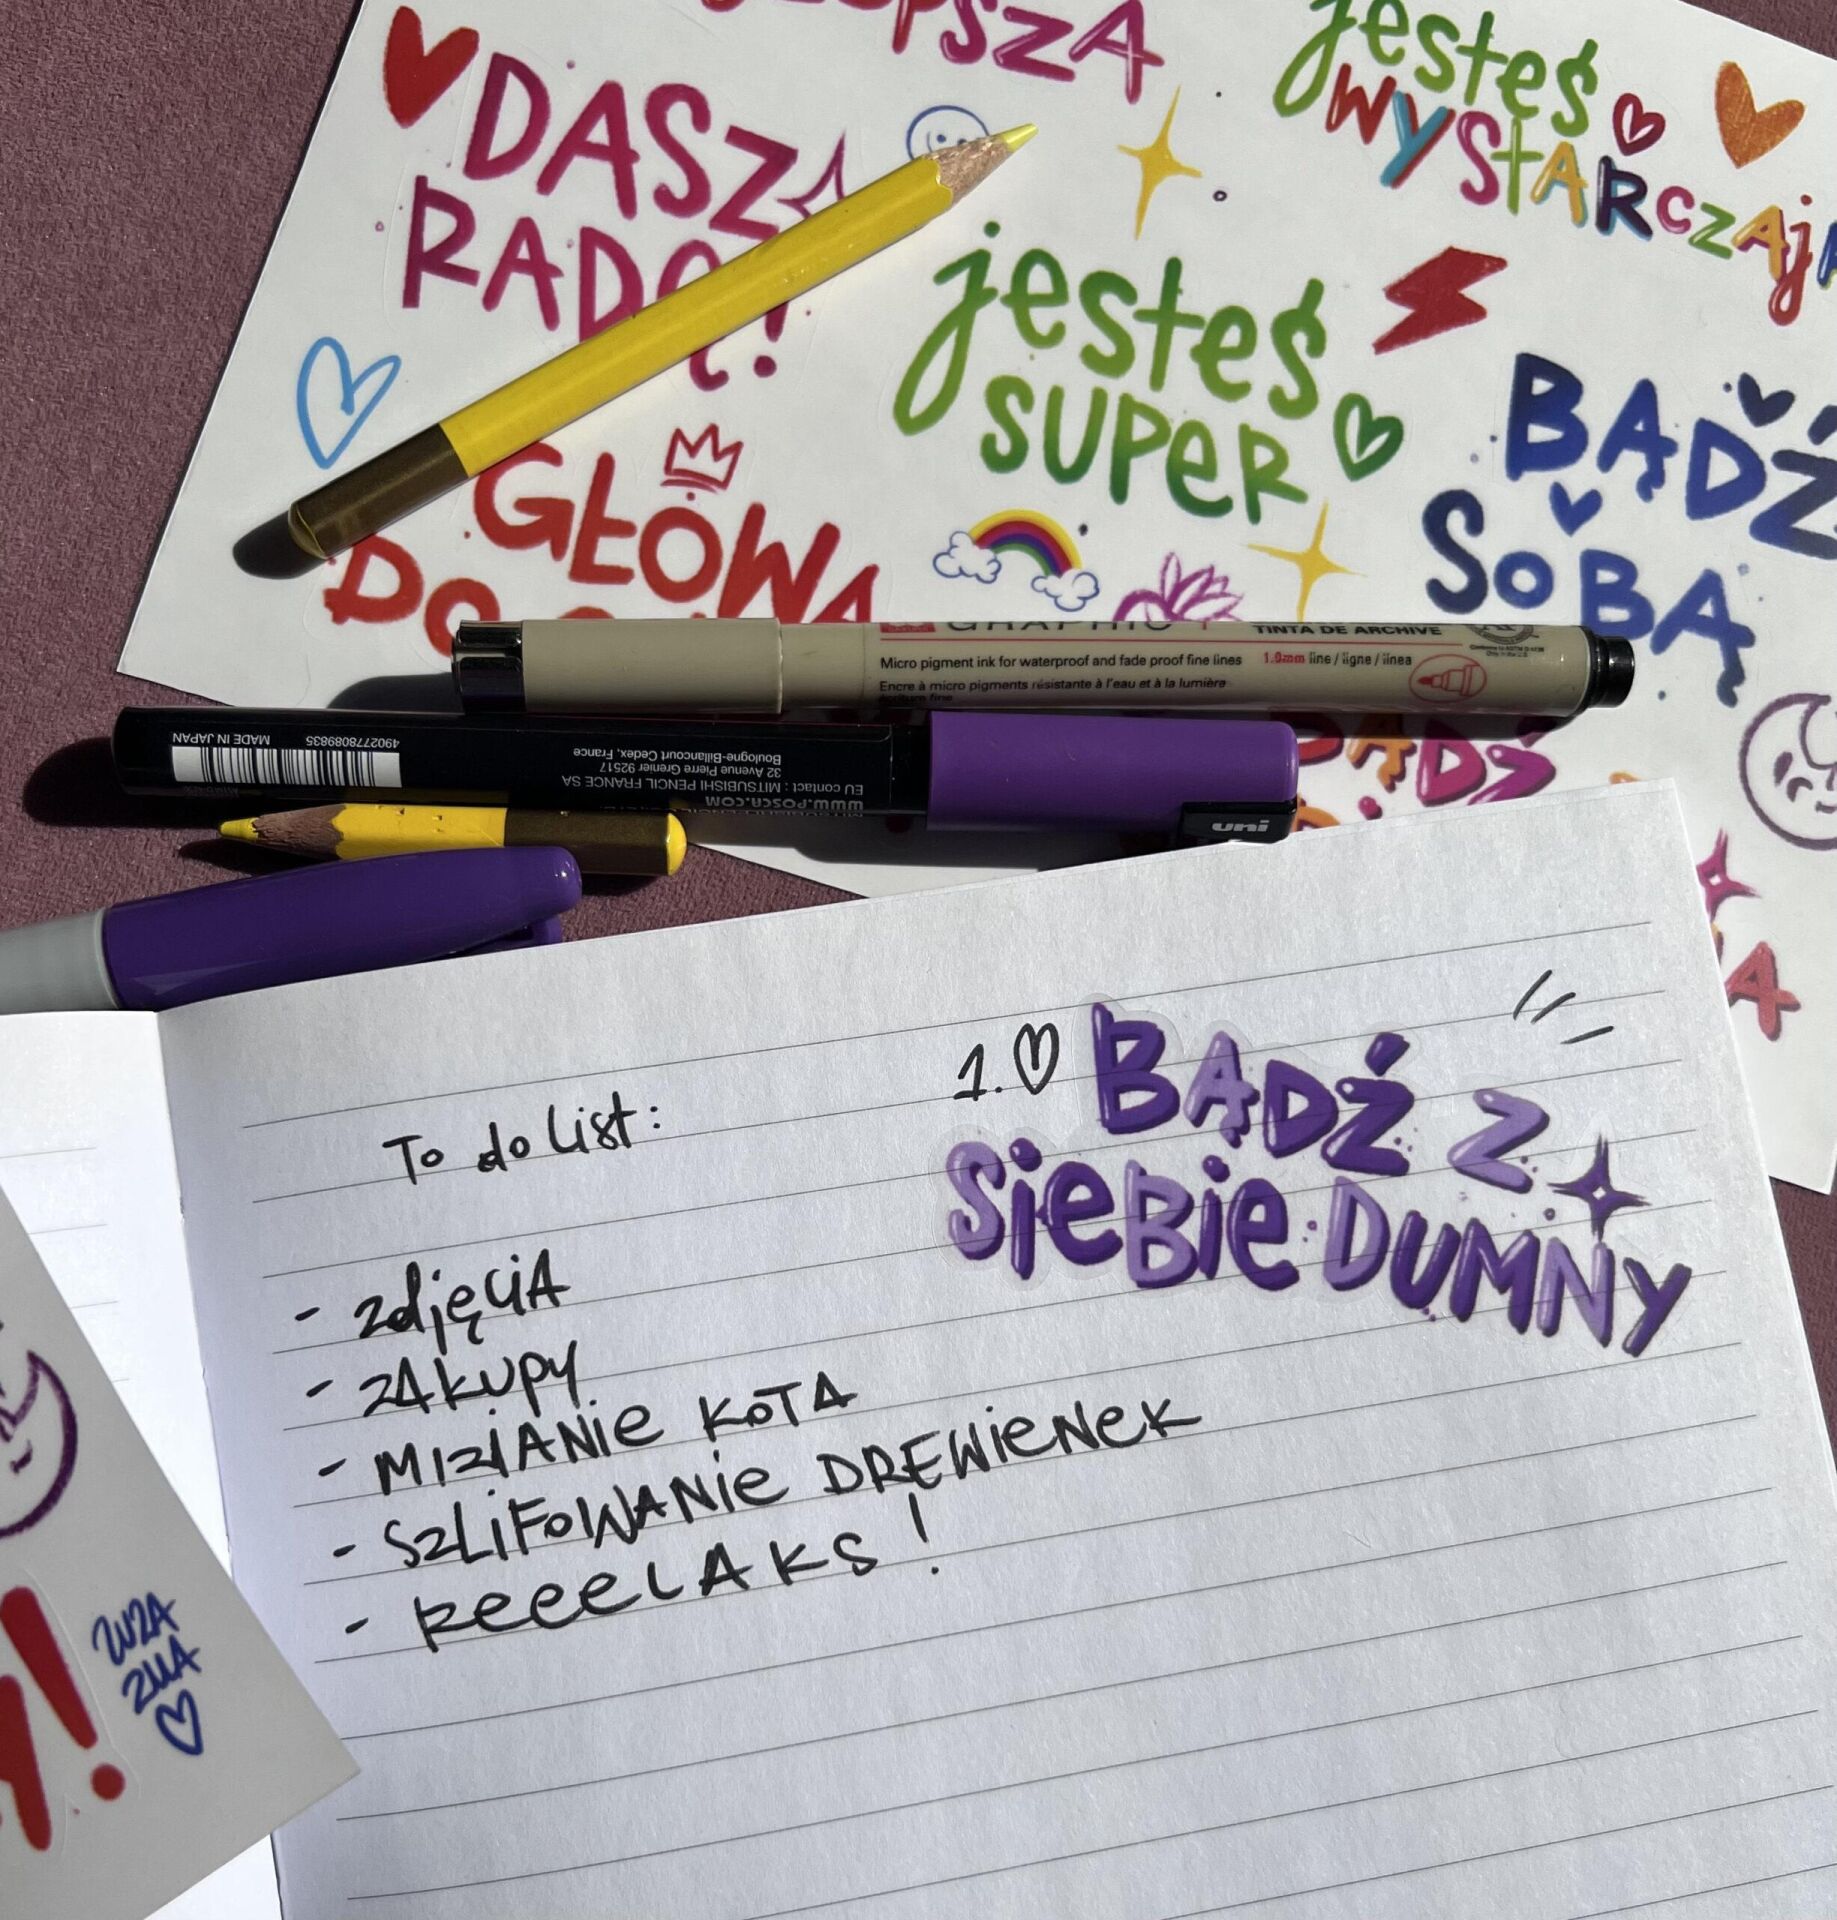 DASZ
RADĘ!
jesteś
WYSTARCZAJĄ
jesteś
SUPER
BĄDŹ
SOBĄ
GŁOWA
TINTA DE ARCHIVE
Micro pigment ink for waterproof and fade proof fine lines
1.0mm line / ligne / línea
Encre à micro pigments résistante à l'eau et à la lumière
écriture fine
4902778089835
MADE IN JAPAN
www.posca.com
EU contact : MITSUBISHI PENCIL FRANCE SA
32 Avenue Pierre Grenier 92517
Boulogne-Billancourt Cedex, France
uni
BĄDŹ
1. BĄDŹ Z
SiEBiE DUMNY
To do List:
- zdjęciA
- zAkupy
- MIZIANiE KOTA
- SZLiFOWANiE DREWiENEK
- ReeeLAKS!